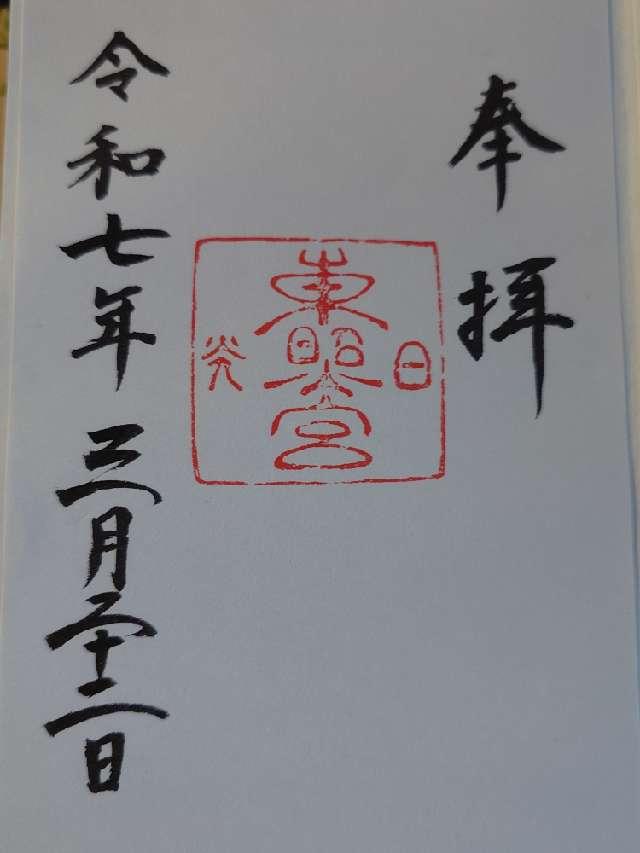 奉拝
日光
東照宮
令和七年三月二十二日